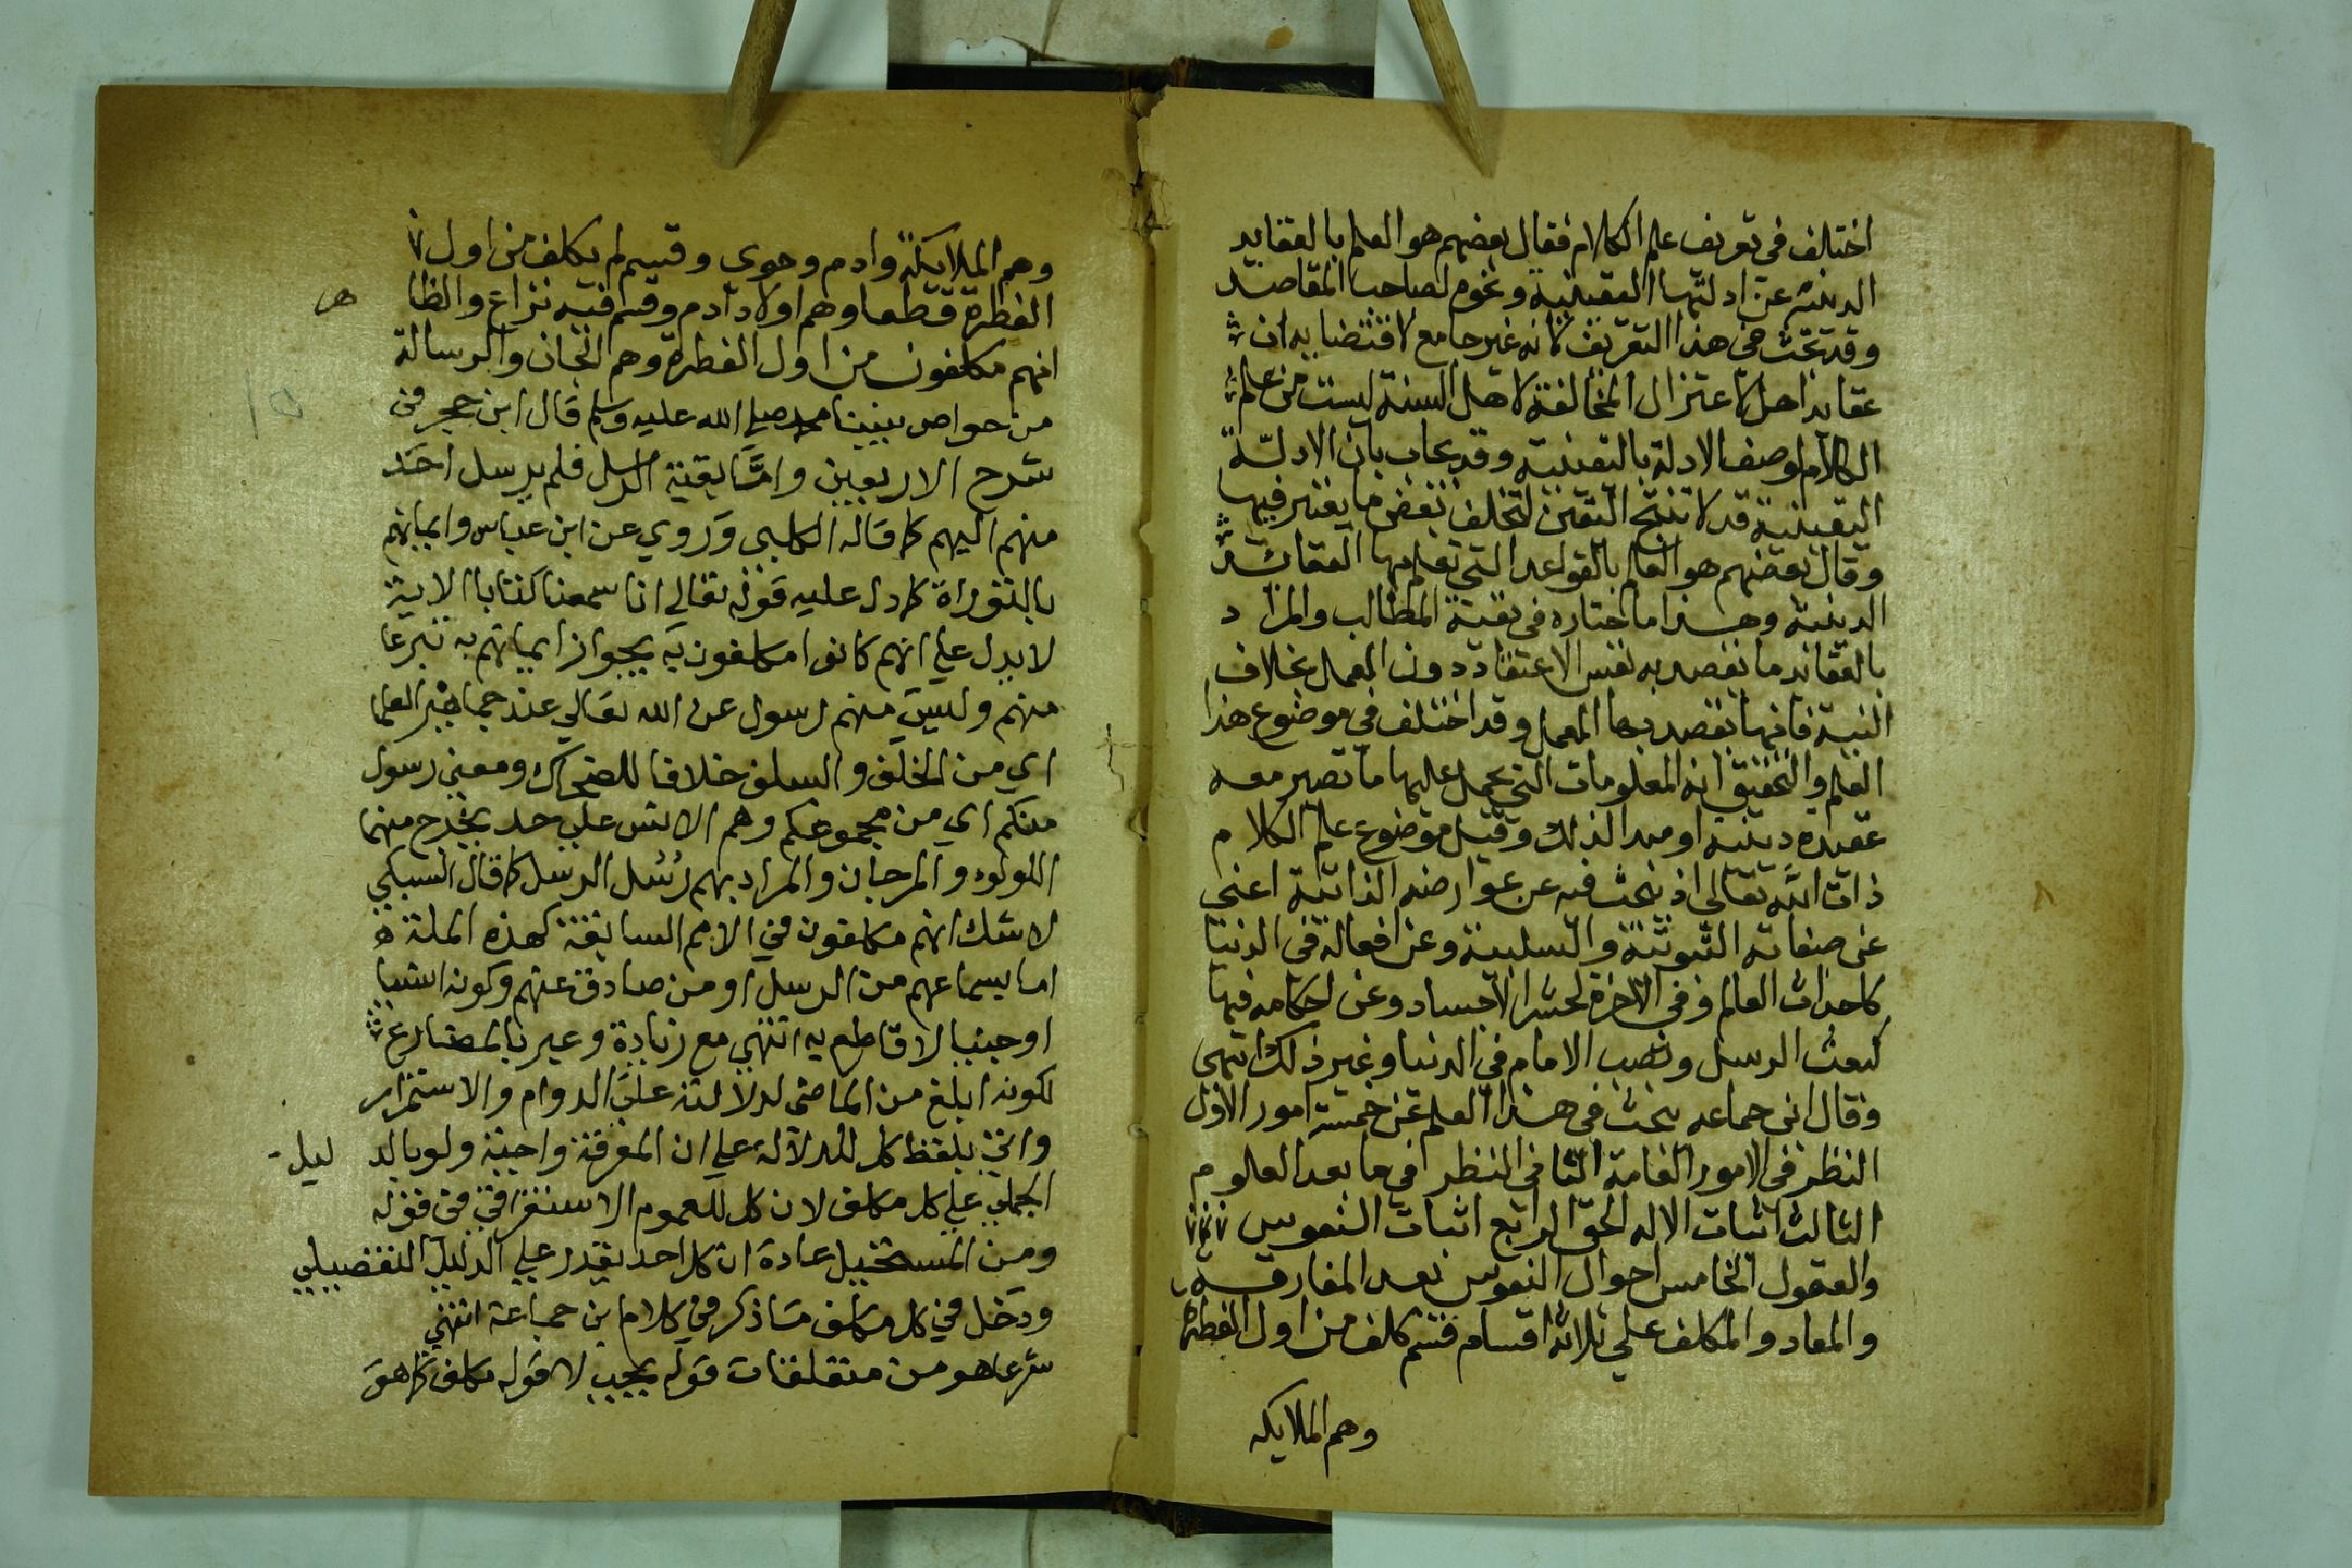 اختلف في تعريف علم الكلام فقال بعضهم هو العلم بالعقايد
الدينية عن ادلتها اليقينية ونحوه لصاحب المقاصد
وقد بحث في هذا التعريف لانه غير جامع لاقتضايه ان
عقايد اهل الاعتزال المخالفة لاهل السنة ليست من علم
الكلام لوصف الادلة باليقينية وقد يجاب بان الادلة
اليقينية قد لا تنتج اليقين لتخلف بعض ما يعتبر فيها
وقال بعضهم هو العلم بالقواعد التي تعلم بها العقائد
الدينية وهذا ما اختاره في بقية المطالب والمراد
بالعقايد ما يقصد به نفس الاعتقاد دون العمل بخلاف
النية فانها يقصد بها العمل وقد اختلف في موضوع هذا
العلم والتحقيق انه المعلومات التي يحمل عليها ما تصير معه
عقيده دينية او مبدا لذلك وقيل موضوع علم الكلام
ذات الله تعالى اذ يبحث فيه عن عوارضه الذاتية اعني
عن صفاته الثبوتية والسلبية وعن افعاله في الدنيا
كاحداث العالم وفي الاخرة لحشر الاجساد وعن احكامه فيها
كبعث الرسل ونصب الامام في الدنيا وغير ذلك انتهى
وقال ابن جماعه يبحث في هذا العلم عن خمسة امور الاول
النظر في الامور العامة الثاني النظر في ما بعد العلوم
الثالث اثبات الاله الحق الرابع اثبات النفوس
والعقول الخامس احوال النفوس بعد المفارقة
والمعاد والمكلف علي ثلاثة اقسام قسم كلف من اول الفطرة
وهم الملايكه
وهم الملايكة وادم وحوى وقسم لم يكلف من اول
الفطرة قطعا وهم اولاد ادم وقسم فيه نزاع والظا هر
انهم مكلفون من اول الفطرة وهم الجان والرسالة
من خواص نبينا محمد صلى الله عليه وسلم قال ابن حجر في
شرح الاربعين واما بقية الرسل فلم يرسل احد
منهم اليهم كما قاله الكلبي وروي عن ابن عباس وايمانهم
بالتوراة كما دل عليه قوله تعالي انا سمعنا كتابا الاية
لا يدل علي انهم كانوا مكلفون به بجواز ايمانهم به تبرعا
منهم وليس منهم رسول عن الله تعالي عند جماهير العلما
اي من الخلف والسلف خلافا للضحاك ومعني رسول
منكم اي من مجموعكم وهم الانس علي حد يخرج منهما
اللولوء والمرجان والمراد بهم رسل الرسل كما قال السبكي
لا شك انهم مكلفون في الامم السابقة كهذه الملة
اما بسماعهم من الرسل او من صادق عنهم وكونه انسيا
او جنيا لا قاطع به انتهي مع زيادة وعبر بالمضارع
لكونه ابلغ من الماضي لدلالته علي الدوام والاستمرار
واتي بلفظ كل للدلالة علي ان المعرفة واجبة ولو بالد ليل
الجملي علي كل مكلف لان كل للعموم الاستغراقي في قوله
ومن المستحيل عادة ان كل احد يقدر علي الدليل التفصيلي
ودخل في كل مكلف ما ذكر في كلام ابن جماعة انتهي
شرعا هو من متعلقات قوله يجب لا قوله مكلف كما هو